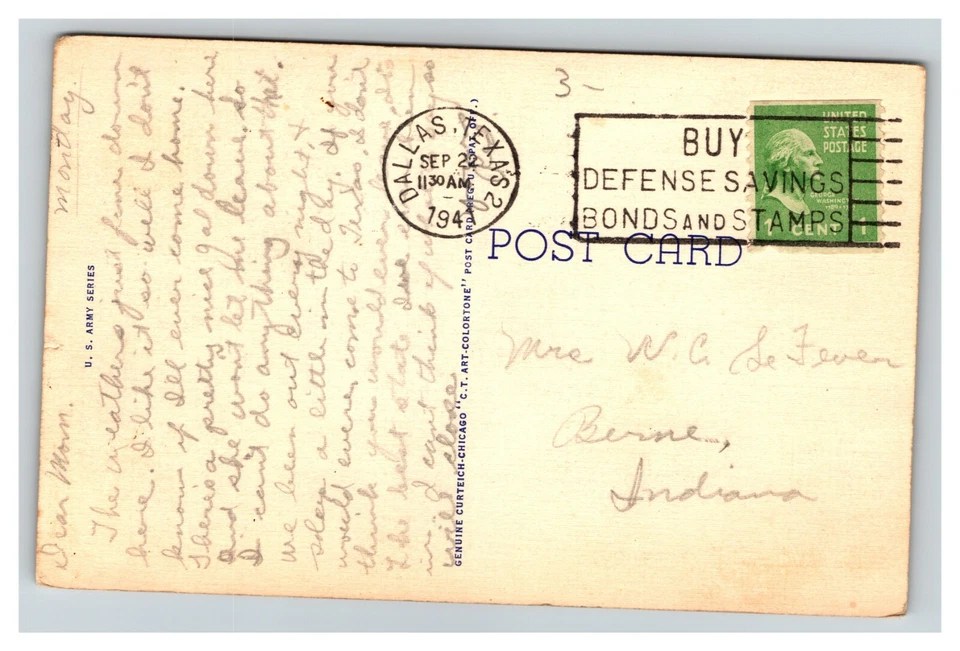 3-
DALLAS, TEXAS 2
SEP 22
11 30 AM
194
BUY
DEFENSE SAVINGS
BONDS AND STAMPS
UNITED
STATES
POSTAGE
1 CENT 1
POST CARD
Mrs W. C. Le Fever
Berne,
Indiana
U. S. ARMY SERIES
GENUINE CURTEICH-CHICAGO "C.T. ART-COLORTONE" POST CARD (REG. U.S. PAT. OFF.)
Monday.
Dear Mom.
The weathers just fine down
here. I like it so well I don't
know if I'll ever come home.
Theres a pretty nice fellow here
and she won't let me leave so
I can't do anything about that.
We been out every night, &
a little in the day. If you
would ever come to Texas I don't
think you would ever
the best state I've ever
in. I can't think of
will close